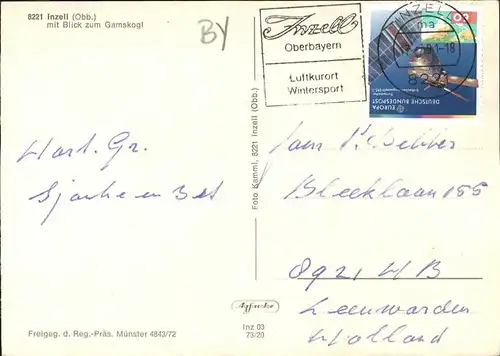 8221 Inzell (Obb.)
mit Blick zum Gamskogl
BY
Inzell
Oberbayern
Luftkurort
Wintersport
INZELL
8221
60
EUROPA
DEUTSCHE BUNDESPOST
Hart. Gr.
Sjouke en Bet
Foto Kamml, 8221 Inzell (Obb.)
Fam
Bleeklaan 155
8921 HB
Leeuwarden
Holland
Inz 03
73/20
Freigeg. d. Reg.-Präs. Münster 4843/72